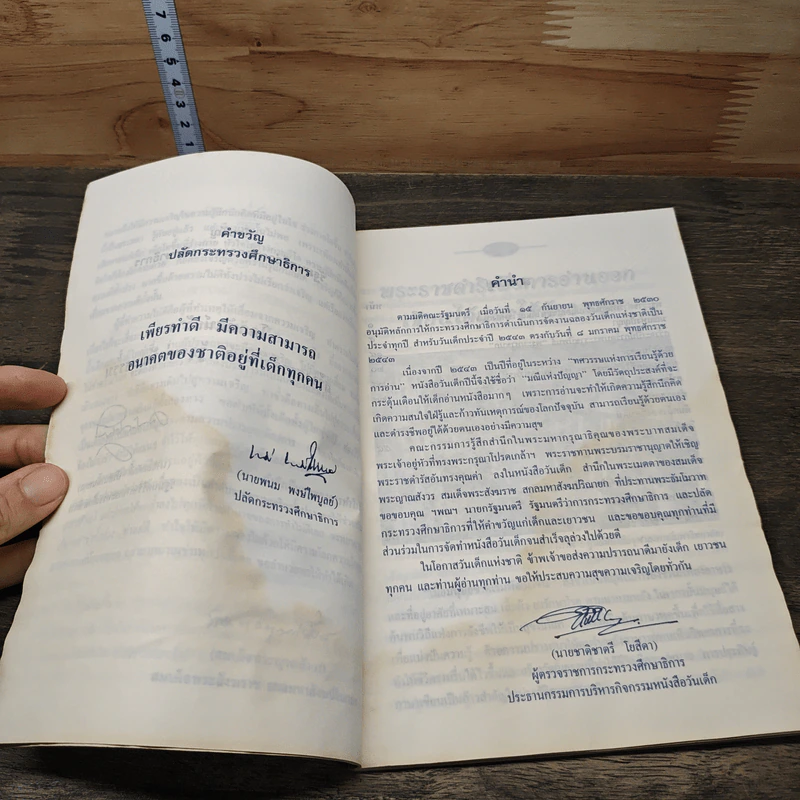 7 6 5 4 3 2 1
คำขวัญ
ปลัดกระทรวงศึกษาธิการ
เพียรทำดี มีความสามารถ
อนาคตของชาติอยู่ที่เด็กทุกคน
(นายพนม พงษ์ไพบูลย์)
ปลัดกระทรวงศึกษาธิการ
คำนำ
ตามมติคณะรัฐมนตรี เมื่อวันที่ ๑๕ กันยายน พุทธศักราช ๒๕๓๐
อนุมัติหลักการให้กระทรวงศึกษาธิการดำเนินการจัดงานฉลองวันเด็กแห่งชาติเป็น
ประจำทุกปี สำหรับวันเด็กประจำปี ๒๕๔๓ ตรงกับวันที่ ๘ มกราคม พุทธศักราช
๒๕๔๓
เนื่องจากปี ๒๕๔๓ เป็นปีที่อยู่ในระหว่าง "ทศวรรษแห่งการเรียนรู้ด้วย
การอ่าน" หนังสือวันเด็กปีนี้จึงใช้ชื่อว่า "มณีแห่งปัญญา" โดยมีวัตถุประสงค์ที่จะ
กระตุ้นเตือนให้เด็กอ่านหนังสือมากๆ เพราะการอ่านจะทำให้เกิดความรู้สึกนึกคิด
เกิดความสนใจใฝ่รู้และก้าวทันเหตุการณ์ของโลกปัจจุบัน สามารถเรียนรู้ด้วยตนเอง
และดำรงชีพอยู่ได้ด้วยตนเองอย่างมีความสุข
คณะกรรมการรู้สึกสำนึกในพระมหากรุณาธิคุณของพระบาทสมเด็จ
พระเจ้าอยู่หัวที่ทรงพระกรุณาโปรดเกล้าฯ พระราชทานพระบรมราชานุญาตให้เชิญ
พระราชดำรัสอันทรงคุณค่า ลงในหนังสือวันเด็ก สำนึกในพระเมตตาของสมเด็จ
พระญาณสังวร สมเด็จพระสังฆราช สกลมหาสังฆปริณายก ที่ประทานพระธัมโมวาท
ขอขอบคุณ ฯพณฯ นายกรัฐมนตรี รัฐมนตรีว่าการกระทรวงศึกษาธิการ และปลัด
กระทรวงศึกษาธิการที่ให้คำขวัญแก่เด็กและเยาวชน และขอขอบคุณทุกท่านที่มี
ส่วนร่วมในการจัดทำหนังสือวันเด็กจนสำเร็จลุล่วงไปด้วยดี
ในโอกาสวันเด็กแห่งชาติ ข้าพเจ้าขอส่งความปรารถนาดีมายังเด็ก เยาวชน
ทุกคน และท่านผู้อ่านทุกท่าน ขอให้ประสบความสุขความเจริญโดยทั่วกัน
(นายชาติชาตรี โยสีดา)
ผู้ตรวจราชการกระทรวงศึกษาธิการ
ประธานกรรมการบริหารกิจกรรมหนังสือวันเด็ก